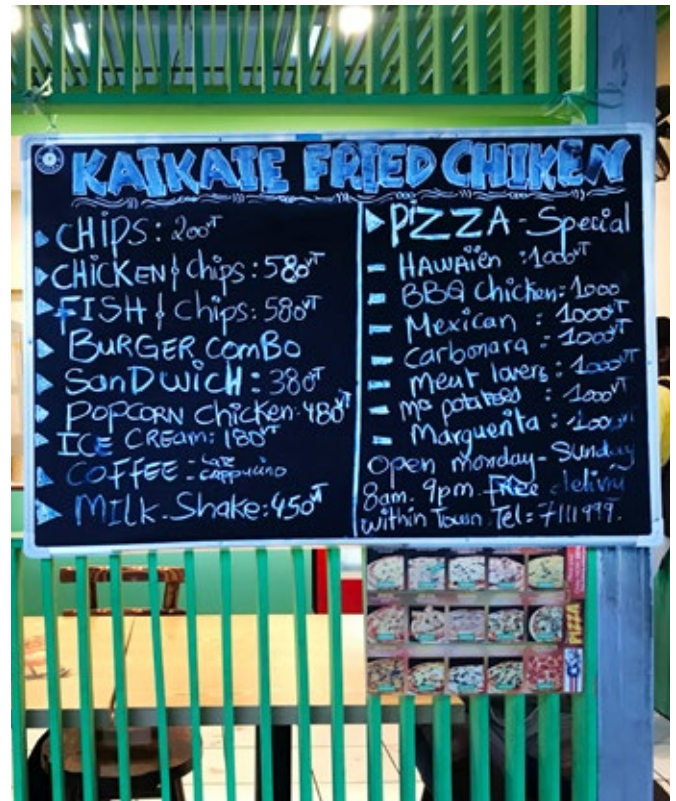 KAIKAIE FRIED CHIKEN
CHIPS: 200VT
CHICKEN & Chips: 580VT
FISH & Chips: 580VT
BURGER ComBo
SanDwicH: 380VT
POPCORN chicken: 480VT
ICE CReam: 180VT
COFFEE - Late
cappucino
MILK-Shake: 450VT
PIZZA - Special
- HAWAiien: 1000VT
- BBQ Chicken: 1000
- Mexican: 1000VT
- Carbonara: 1000VT
- Meat lovers: 1000VT
- Mc potatoes: 1000VT
- Marguerita: 1000VT
Open monday - Sunday
8am. 9pm. Free delivry
within Town. Tel: 7111999.
PIZZA